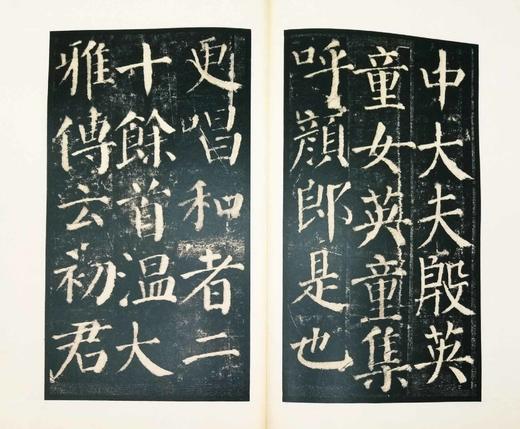 中大夫殷英
童女英童集
呼顔郎是也
更唱和者二
十餘首温大
雅傳云初君